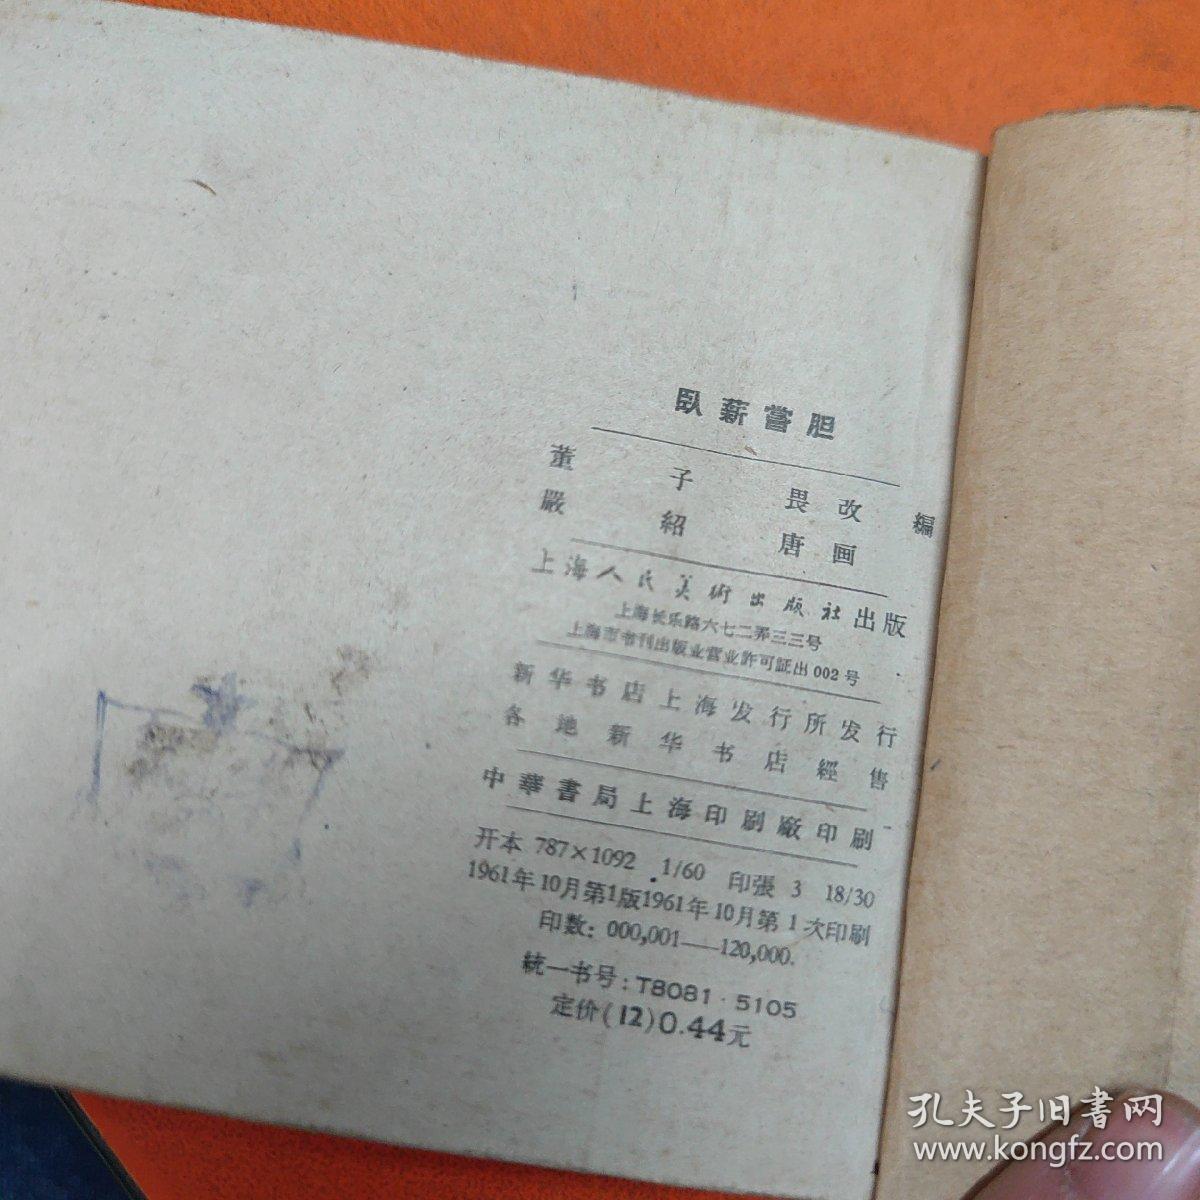 臥薪嘗胆
董子畏改編
嚴紹唐画
上海人民美術出版社出版
上海长乐路六七二弄三三号
上海市书刊出版业营业許可証出002号
新华书店上海发行所发行
各地新华书店經售
中華書局上海印刷廠印刷
开本 787×1092 1/60 印張 3 18/30
1961年10月第1版1961年10月第1次印刷
印数: 000,001—120,000.
統一书号:T8081·5105
定价(12)0.44元
孔夫子旧書网
www.kongfz.com